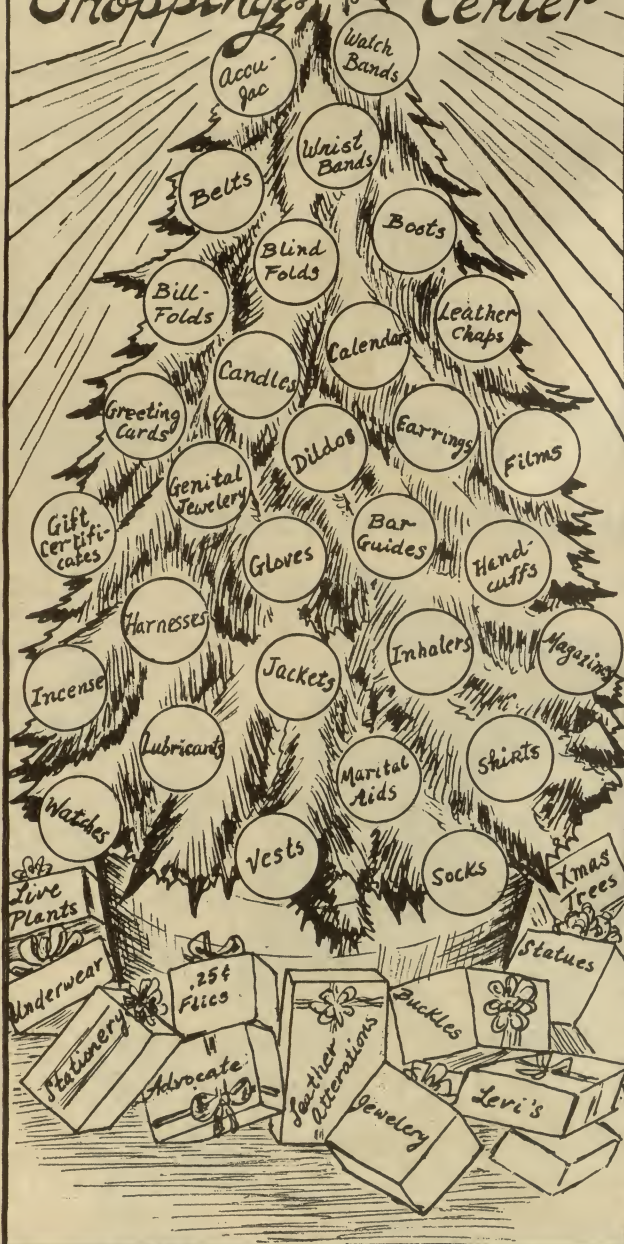 Shopping
Center
Accu-
Jac
Watch
Bands
Wrist
Bands
Belts
Boots
Blind
Folds
Bill-
Folds
Leather
Chaps
Calendars
Candles
Greeting
Cards
Earrings
Dildos
Films
Genital
Jewelery
Gift
Certifi-
cates
Bar
Guides
Gloves
Hand-
cuffs
Harnesses
Inhalers
Magazines
Jackets
Incense
Lubricants
Shirts
Marital
Aids
Watches
Vests
Socks
Live
Plants
Xmas
Trees
Underwear
.25¢
Flics
Statues
Buckles
Stationery
Advocate
Leather
Alterations
Levi's
Jewelery